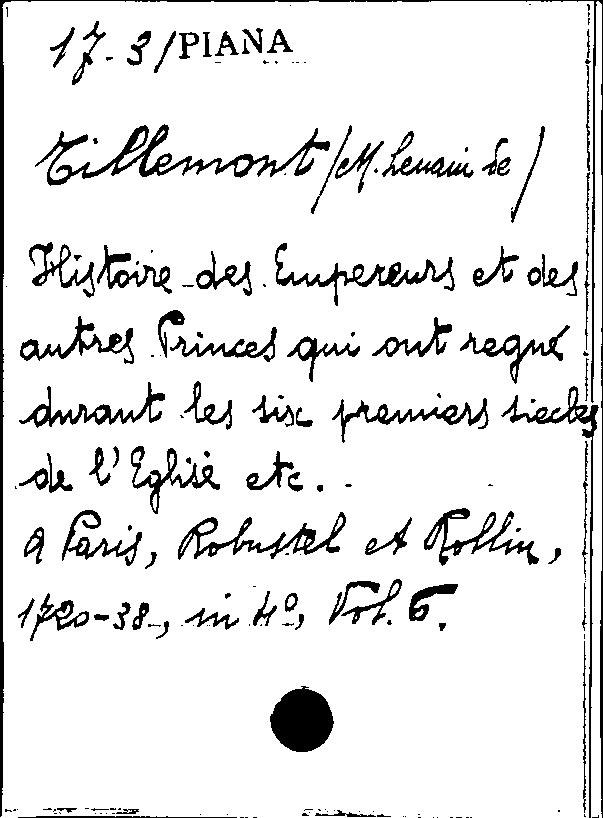 17-3/PIANA
Tillemont (M. Lenain de)
Histoire des Empereurs et des
autres Princes qui ont regné
durant les six premiers siecles
de l'Eglise etc.
A Paris, Robustel et Rollin,
1720-38, in 4º, Vol. 6.